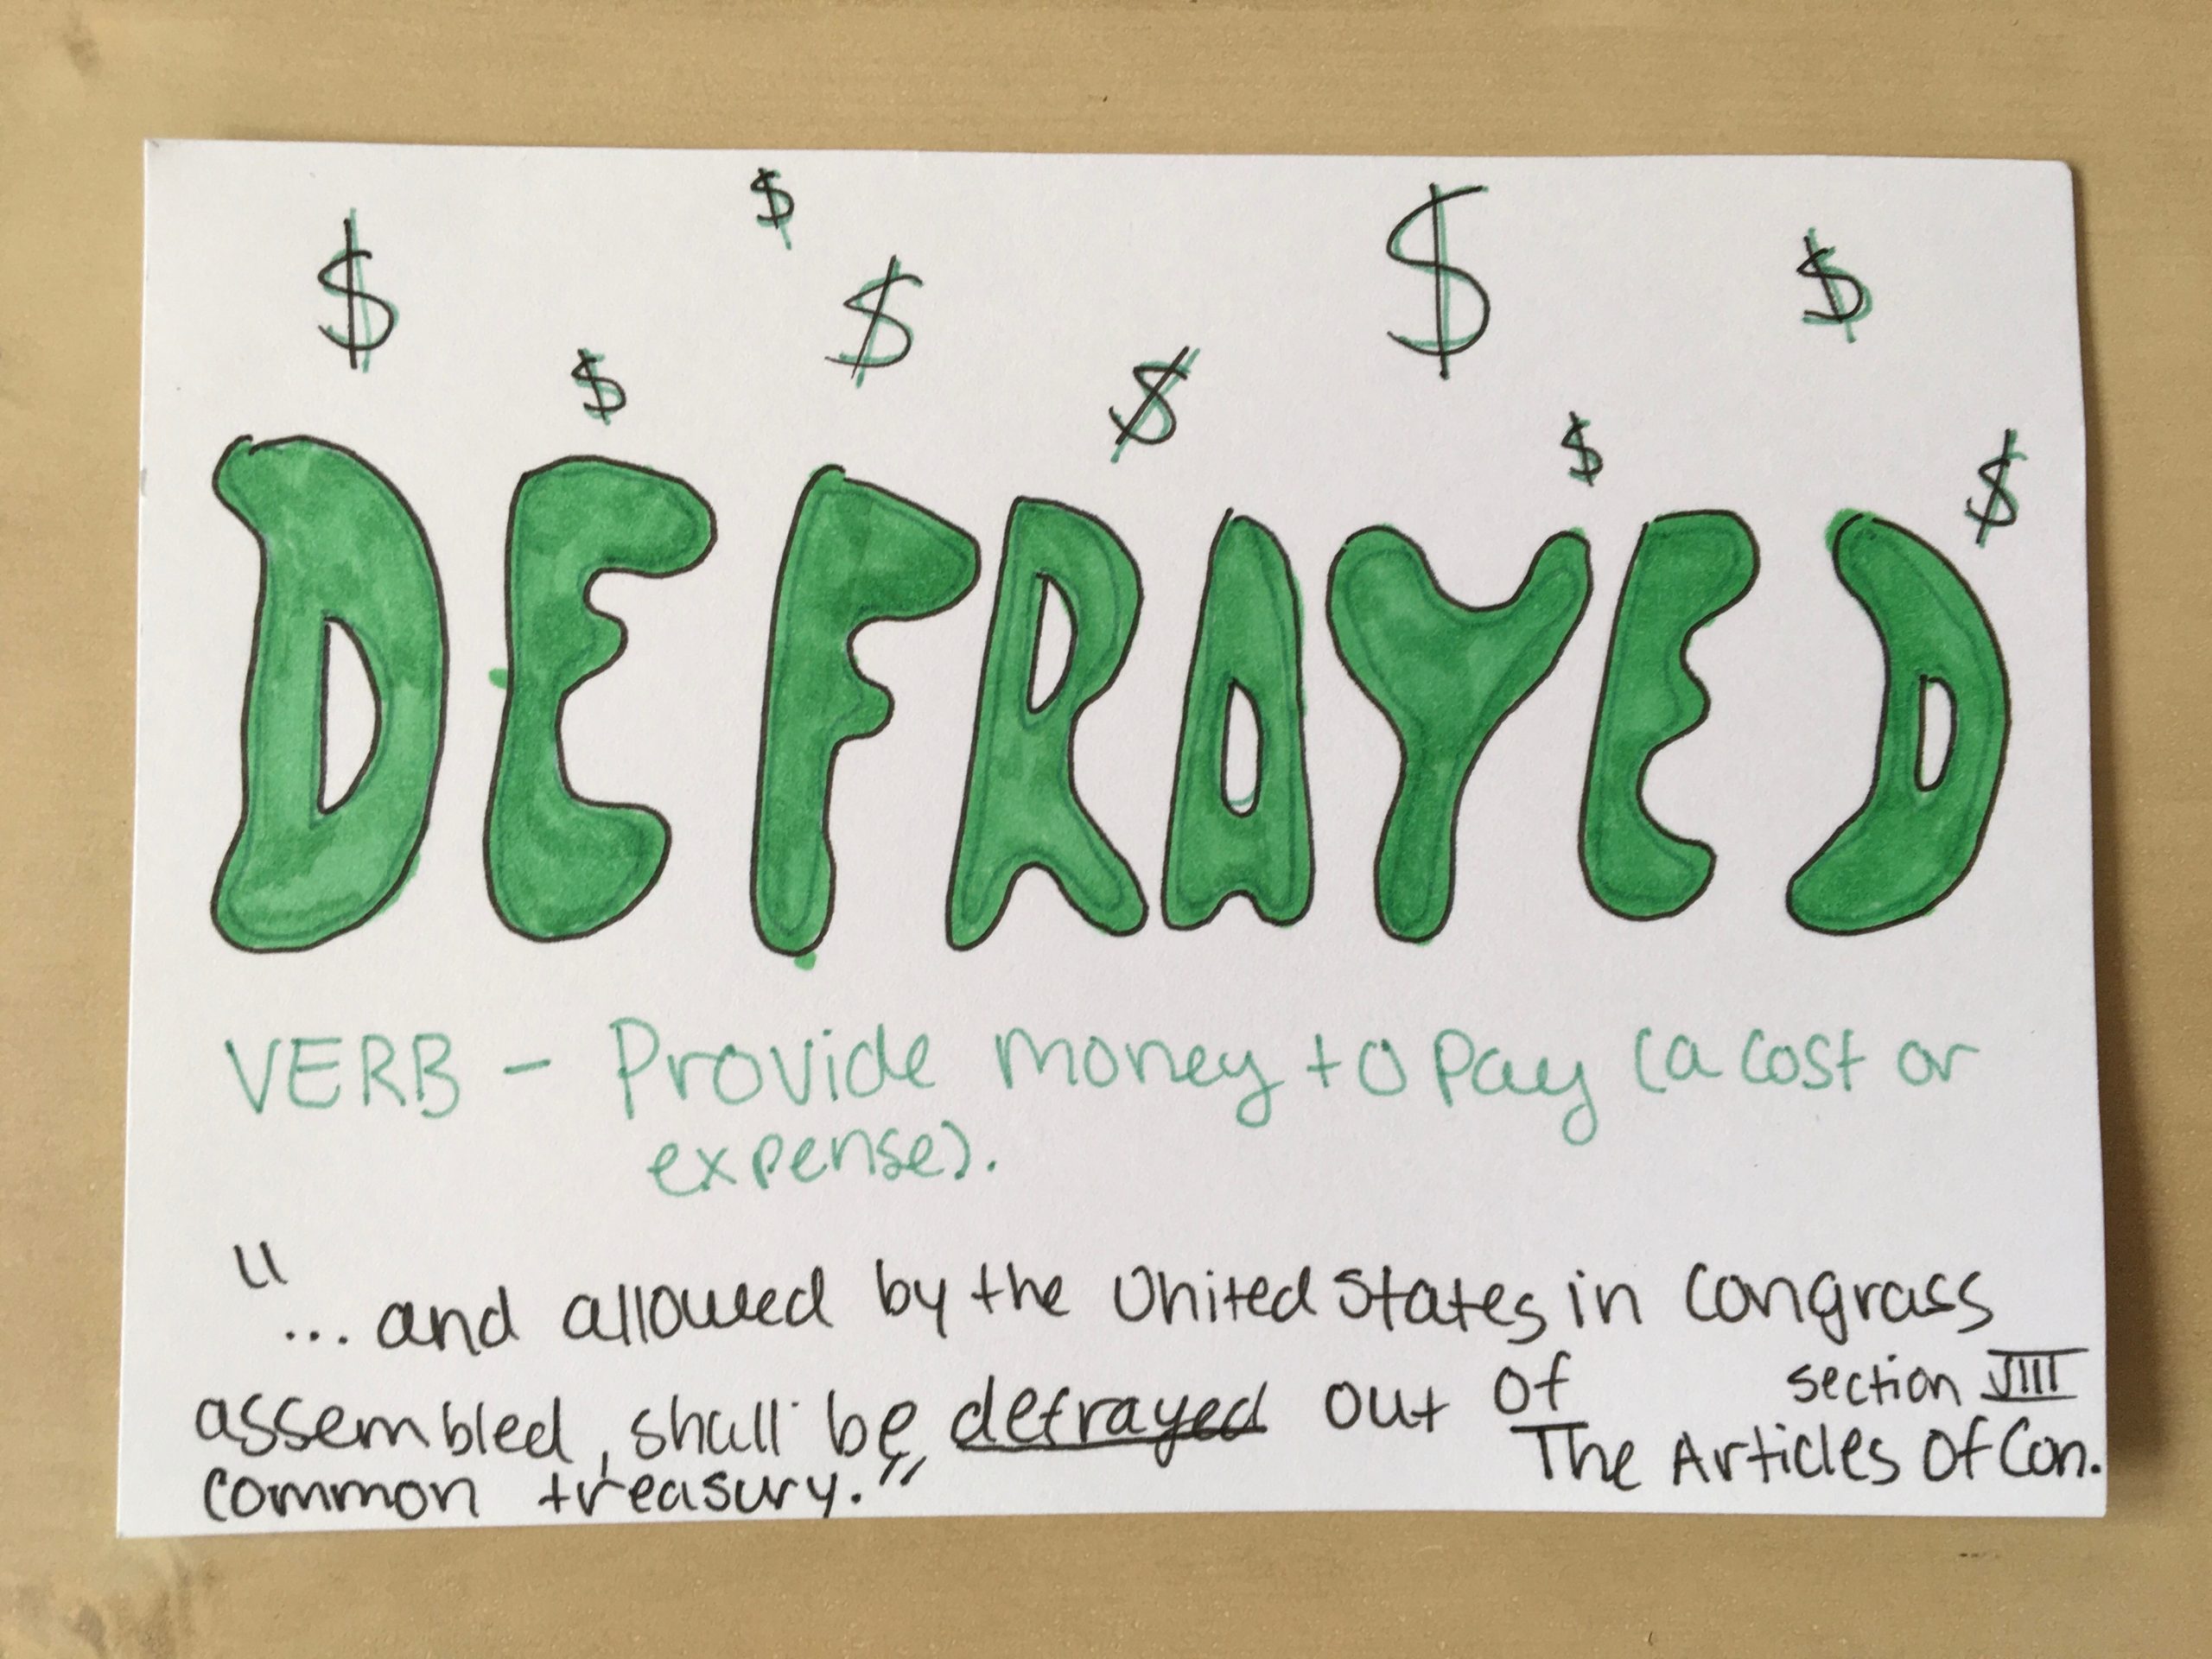 $ $ $ $ $ $ $ $ $
DEFRAYED
VERB - Provide money to pay (a cost or
expense).
"... and allowed by the United States in Congrass
assembled, shall be defrayed out of
common treasury."
section VIII
The Articles Of Con.